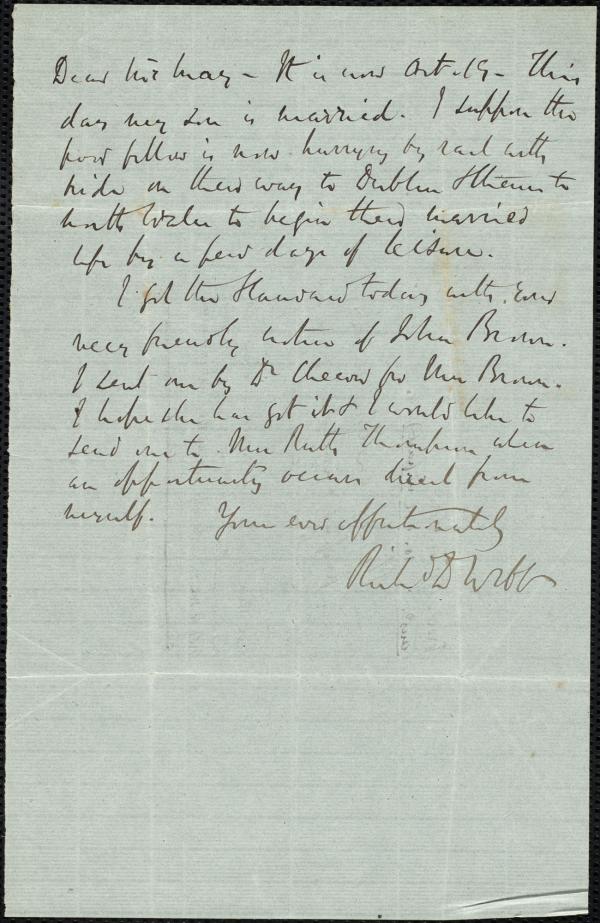 Dear Mr May - It is now Oct. 19 - This
day my son is married. I suppose the
poor fellow is now hurrying by rail with
bride on their way to Dublin & thence to
North Wales to begin their married
life by a few days of leisure.
I got the Standard today with your
very friendly notice of John Brown.
I sent one by Dr Cheever for Mrs Brown.
I hope she has got it & I would like to
send one to Mrs Ruth Thompson when
an opportunity occurs direct from
myself. Yours ever affectionately
Richd D Webb